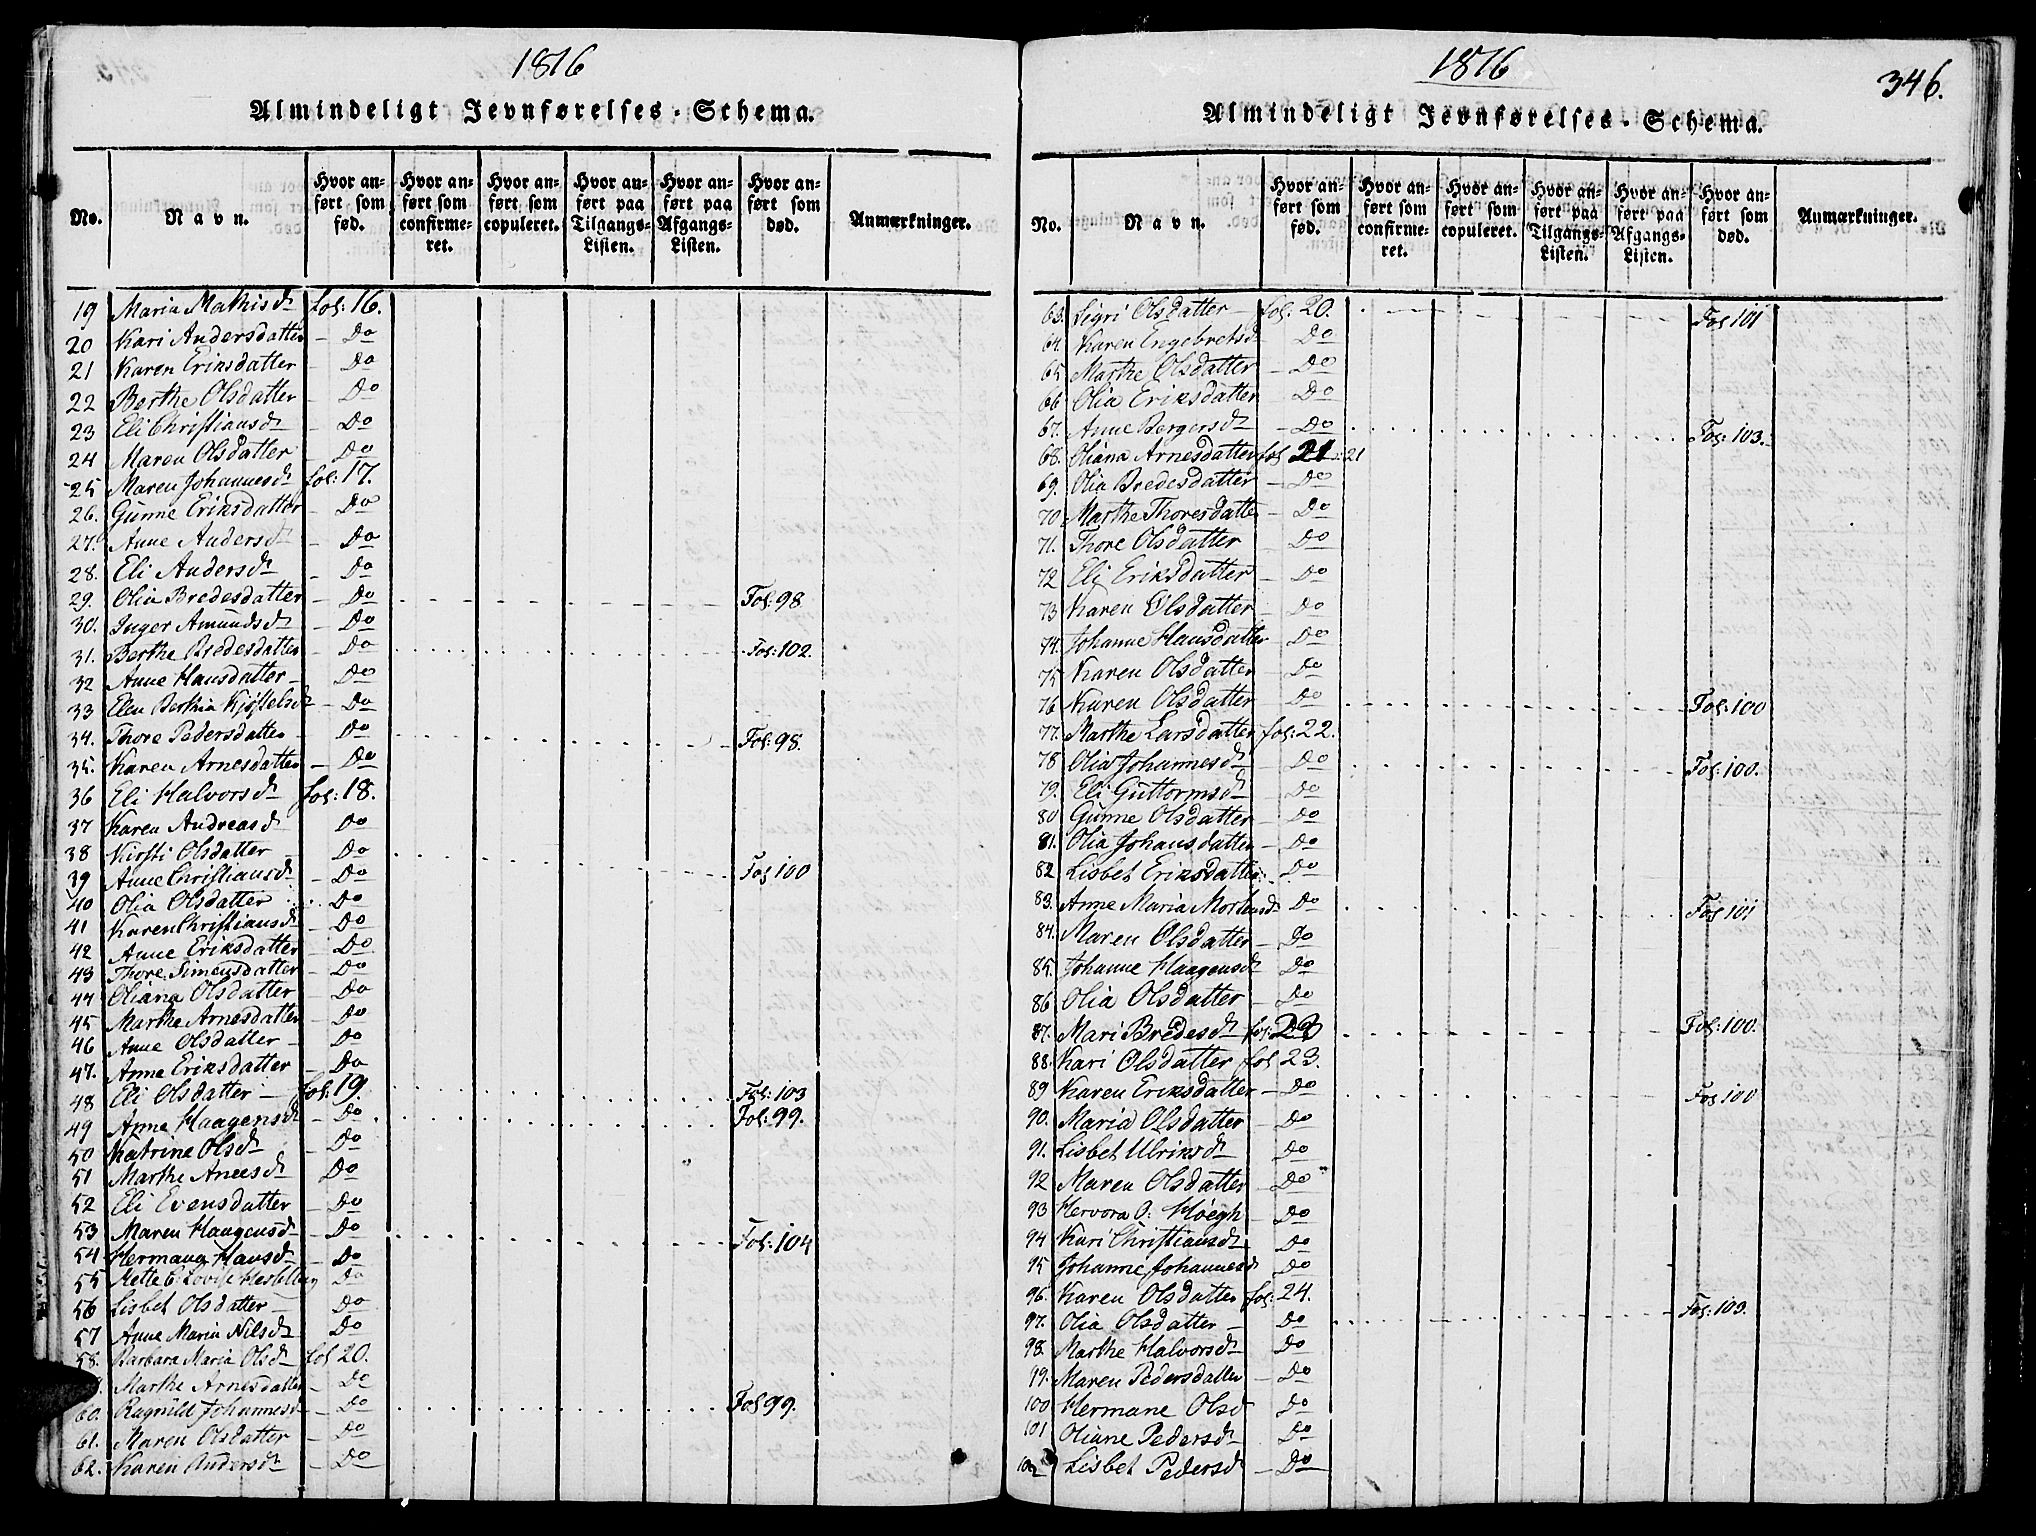 1816
Almindeligt Jevnførelses-Schema.
No. Navn. Hvor anført som fød. Hvor anført som confirmeret. Hvor anført, som copuleret. Hvor anført paa Tilgangs-Listen. Hvor anført paa Afgangs-Listen. Hvor anført som død. Anmærkninger.
19 Maria Mathisd fol: 16.
20 Kari Andersdatter - Do
21 Karen Eriksdatter - Do
22 Berthe Olsdatter - Do
23 Eli Christiansd - Do
24 Maren Olsdatter - Do
25 Maren Johannesd fol: 17.
26. Gunne Eriksdatter - Do
27. Anne Andersd - Do
28. Eli Andersd - Do
29. Olia Bredesdatter - Do Fol: 98
30. Inger Amundsd - Do
31. Berthe Bredesdatter - Do Fol: 102.
32 Anne Hansdatter - Do
33 Elen Berthia - Do
34. Thore Pedersdatter - Do Fol: 98.
35. Karen Arnesdatter - Do
36 Eli Halvorsd fol: 18.
37 Karen Andreasd Do
38 Kirsti Olsdatter - Do
39 Anne Christiansd - Do Fol 100
40 Olia Olsdatter Do
41 Karen Christiansd - Do
42 Anne Eriksdatter - Do
43 Thore Simensdatter - Do
44 Oliana Olsdatter - Do
45 Marthe Arnesdatter - Do
46 Anne Olsdatter - Do
47. Anne Eriksdatter - Do
48 Eli Olsdatter - fol: 19. Fol: 103
49 Anne Haagensd - Do Fol: 99.
50 Katrine Olsd - Do
51 Marthe Do
52 Eli Evensdatter - Do
53 Maren Haagensd - Do Fol: 104
54 Hermana Hansd - Do
55 Mette Lovise Do
56 Lisbet Olsdatter - Do
57 Anne Maria Nilsd Do
58. Barbara Maria Olsd fol 20.
Marthe Arnesdatter - Do
60. Ragnild Johannesd - Do Fol 99.
61. Maren Olsdatter - Do
62. Karen Andersd - Do
1816
346.
Almindeligt Jevnførelses-Schema.
No. Navn. Hvor anført som fød. Hvor anført som confirmeret. Hvor anført som copuleret. Hvor anført paa Tilgangs-Listen. Hvor anført paa Afgangs-Listen. Hvor anført som død. Anmærkninger.
63. Sigri Olsdatter - fol: 20. Fol 101
64. Karen Engebretsd Do
65 Marthe Olsdatter - Do
66 Olia Eriksdatter - Do
67. Anne Bergersd - Do Fol: 103.
68. Oliana Arnesdatter fol 21: 21
69. Olia Bredesdatter - Do
70 Marthe Thoresdatter - Do
71. Thore Olsdatter - Do
72 Eli Eriksdatter - Do
73 Karen Olsdatter - Do
74. Johanne Hansdatter - Do
75 Karen Olsdatter - Do
76 Karen Olsdatter - Do Fol: 100
77. Marthe Larsdatter fol: 22.
78 Olia Johannesd - Do Fol: 100.
79. Eli Guttormsd - Do
80 Gunne Olsdatter - Do
81. Olia Johansdatter - Do
82 Lisbet Eriksdatter Do
83. Anne Maria Mortensd Do Fol 101
84. Maren Olsdatter - Do
85. Johanne Haagensd Do
86 Olia Olsdatter - Do
87. Mari Bredesd fol: 23 Fol: 100.
88. Kari Olsdatter fol 23.
89 Karen Eriksdatter - Do Fol 100
90. Maria Olsdatter - Do
91. Lisbet Ulriksd - Do
92 Maren Olsdatter - Do
93 Hervora O: Høegh - Do
94 Kari Christiansd Do
95 Johanne Johannesd Do
96. Karen Olsdatter fol: 24.
97. Olia Olsdatter - Do Fol: 103.
98. Marthe Halvorsd - Do
99. Maren Pedersdatter - Do
100 Hermane Olsd Do
101 Oliane Pedersd - Do
102 Lisbet Pedersd - Do